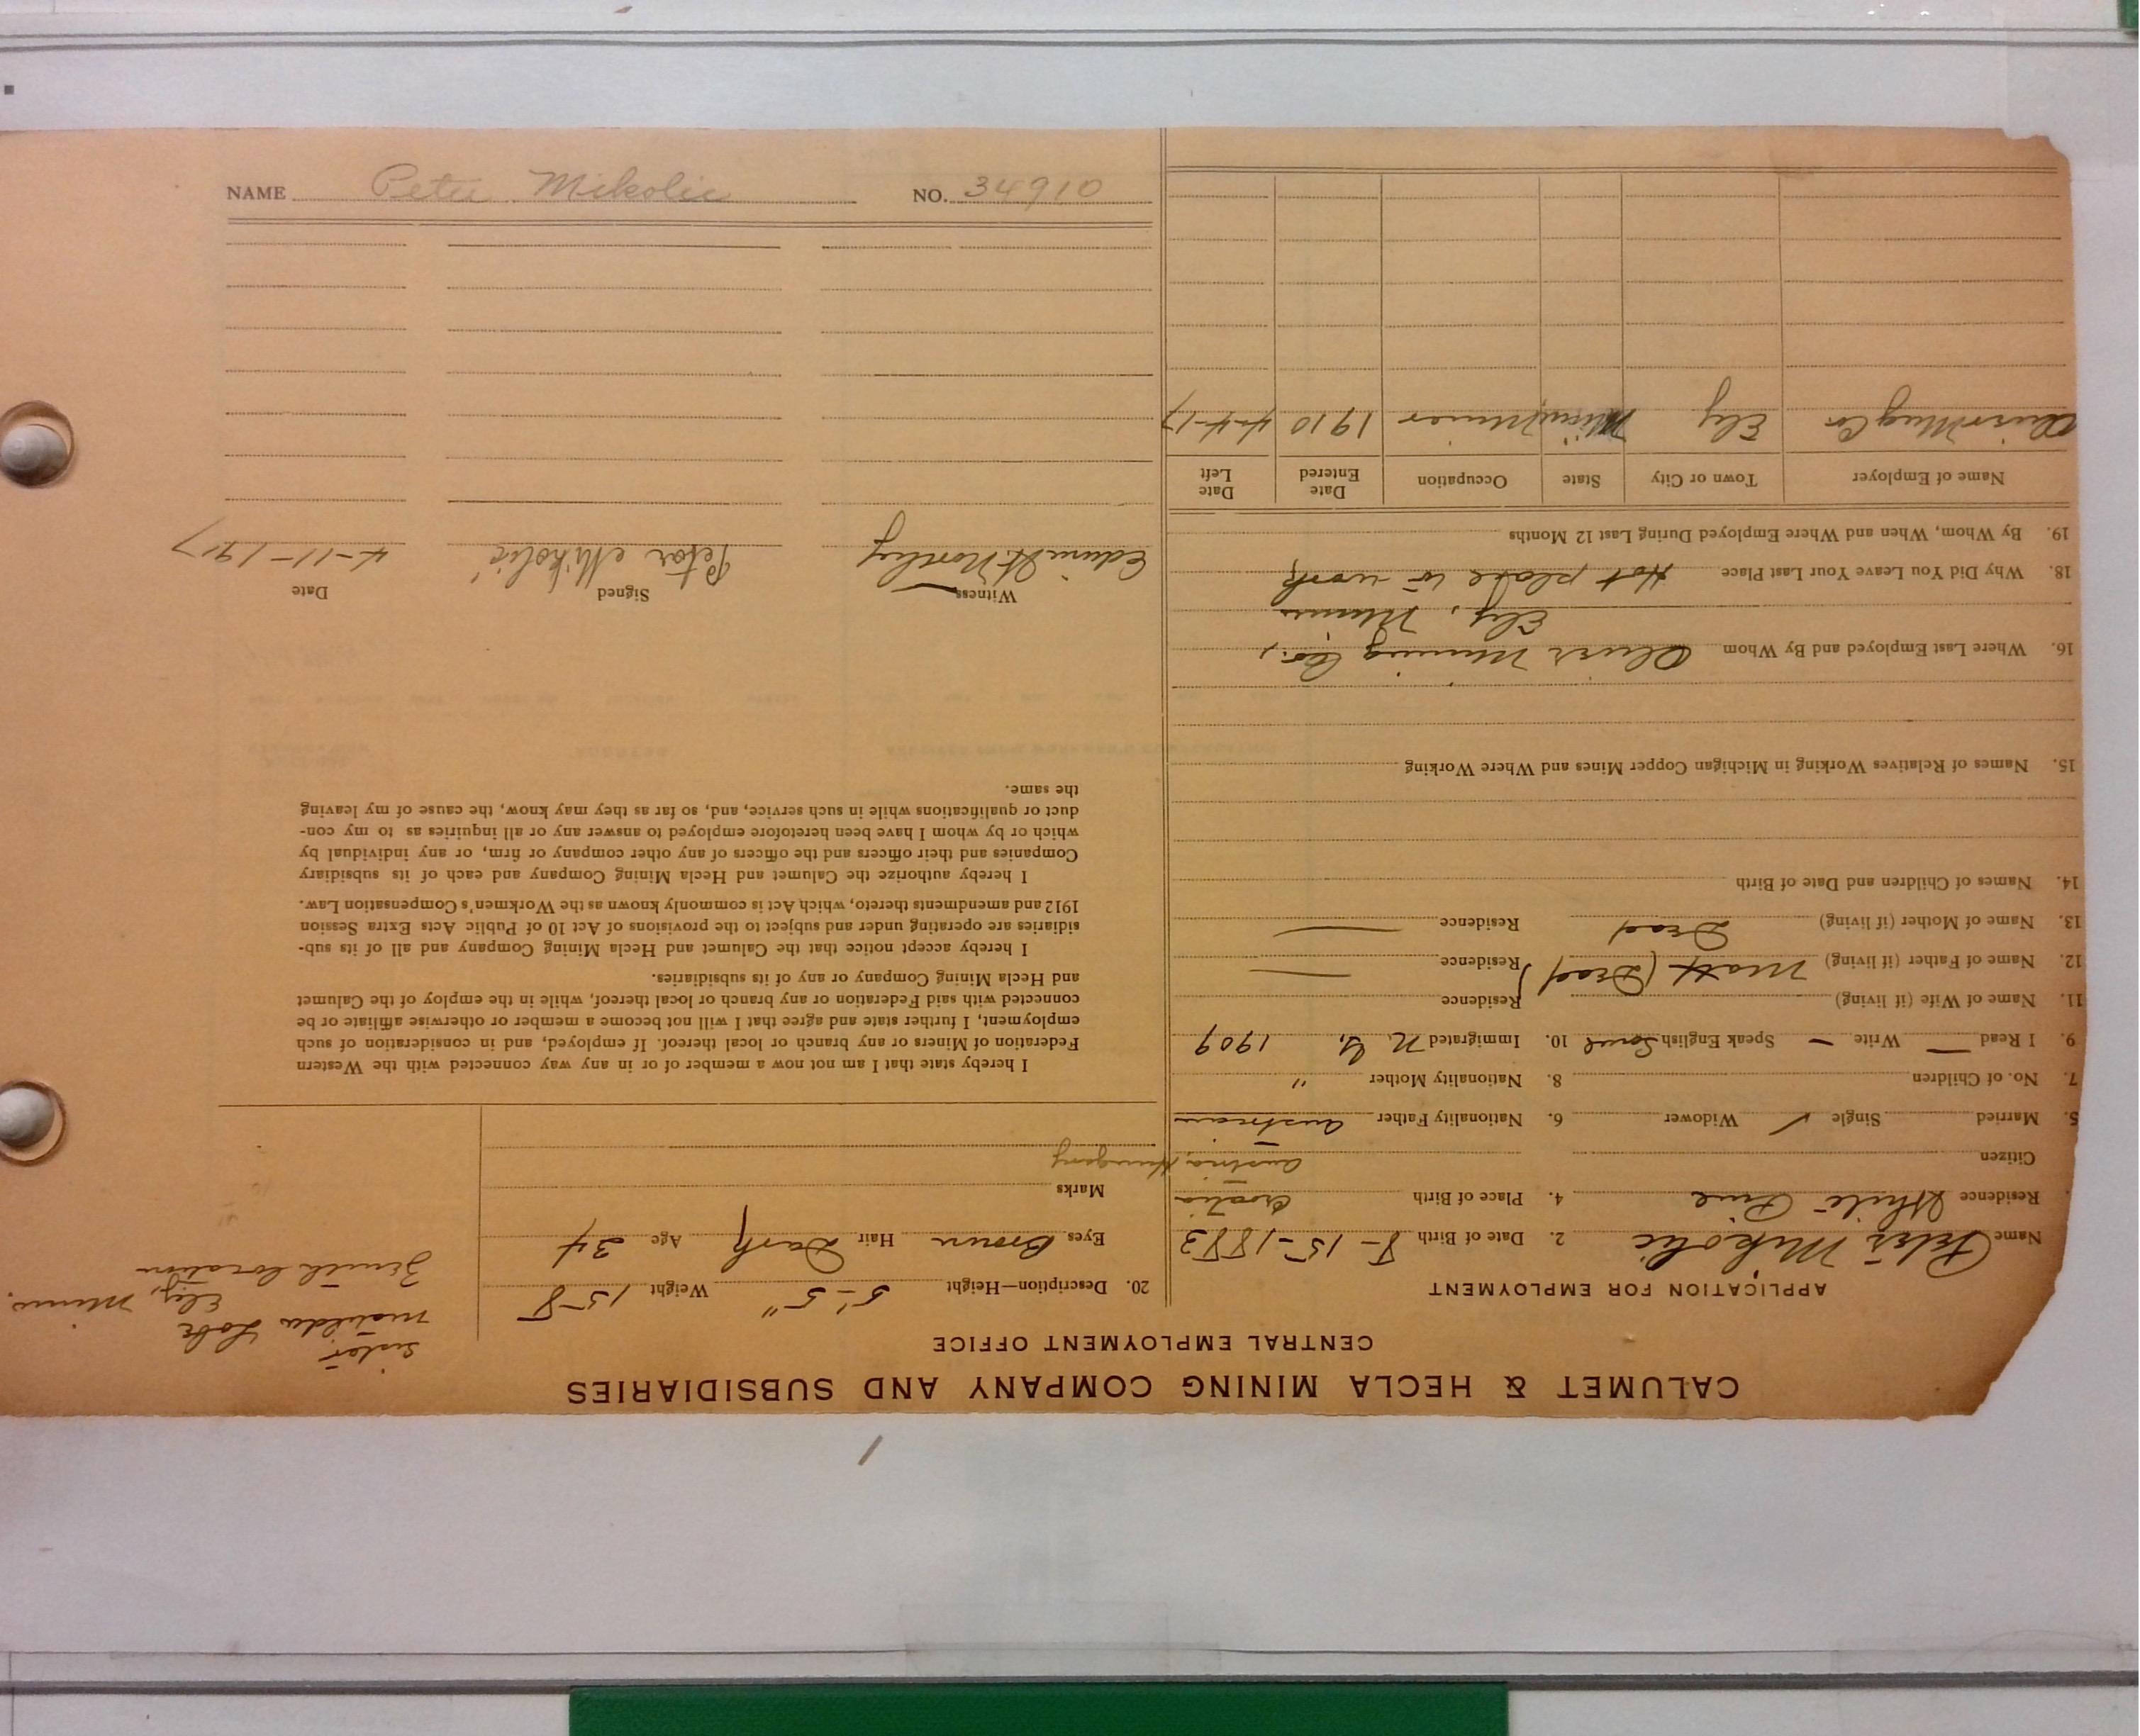 CALUMET & HECLA MINING COMPANY AND SUBSIDIARIES
CENTRAL EMPLOYMENT OFFICE
APPLICATION FOR EMPLOYMENT
Name Peter Mikolic 2. Date of Birth 8-15-1883
Residence White Pine 4. Place of Birth Croatia
Citizen Austria Hungary
5. Married Single ✓ Widower 6. Nationality Father Austrian
7. No. of Children 8. Nationality Mother "
9. I Read — Write — Speak English 10. Immigrated N. Y. 1909
11. Name of Wife (if living) Residence
12. Name of Father (if living) Matt (Dead) Residence —
13. Name of Mother (if living) Dead Residence —
14. Names of Children and Date of Birth
15. Names of Relatives Working in Michigan Copper Mines and Where Working
16. Where Last Employed and By Whom Oliver Mining Co.,
Ely, Minn
18. Why Did You Leave Your Last Place Hot place to work
19. By Whom, When and Where Employed During Last 12 Months
Name of Employer Town or City State Occupation Date Entered Date Left
Oliver Mng Co Ely Minn Miner 1910 4-4-17
sister
Matilda
Ely, Minn.
location
20. Description—Height 5'-5" Weight 158
Eyes Brown Hair Dark Age 34
Marks
I hereby state that I am not now a member of or in any way connected with the Western
Federation of Miners or any branch or local thereof. If employed, and in consideration of such
employment, I further state and agree that I will not become a member or otherwise affiliate or be
connected with said Federation or any branch or local thereof, while in the employ of the Calumet
and Hecla Mining Company or any of its subsidiaries.
I hereby accept notice that the Calumet and Hecla Mining Company and all of its sub-
sidiaries are operating under and subject to the provisions of Act 10 of Public Acts Extra Session
1912 and amendments thereto, which Act is commonly known as the Workmen's Compensation Law.
I hereby authorize the Calumet and Hecla Mining Company and each of its subsidiary
Companies and their officers and the officers of any other company or firm, or any individual by
which or by whom I have been heretofore employed to answer any or all inquiries as to my con-
duct or qualifications while in such service, and, so far as they may know, the cause of my leaving
the same.
Witness Signed Date
Edwin H. Petar Mikolić 4-11-1917
NAME Peter Mikolic NO. 34910